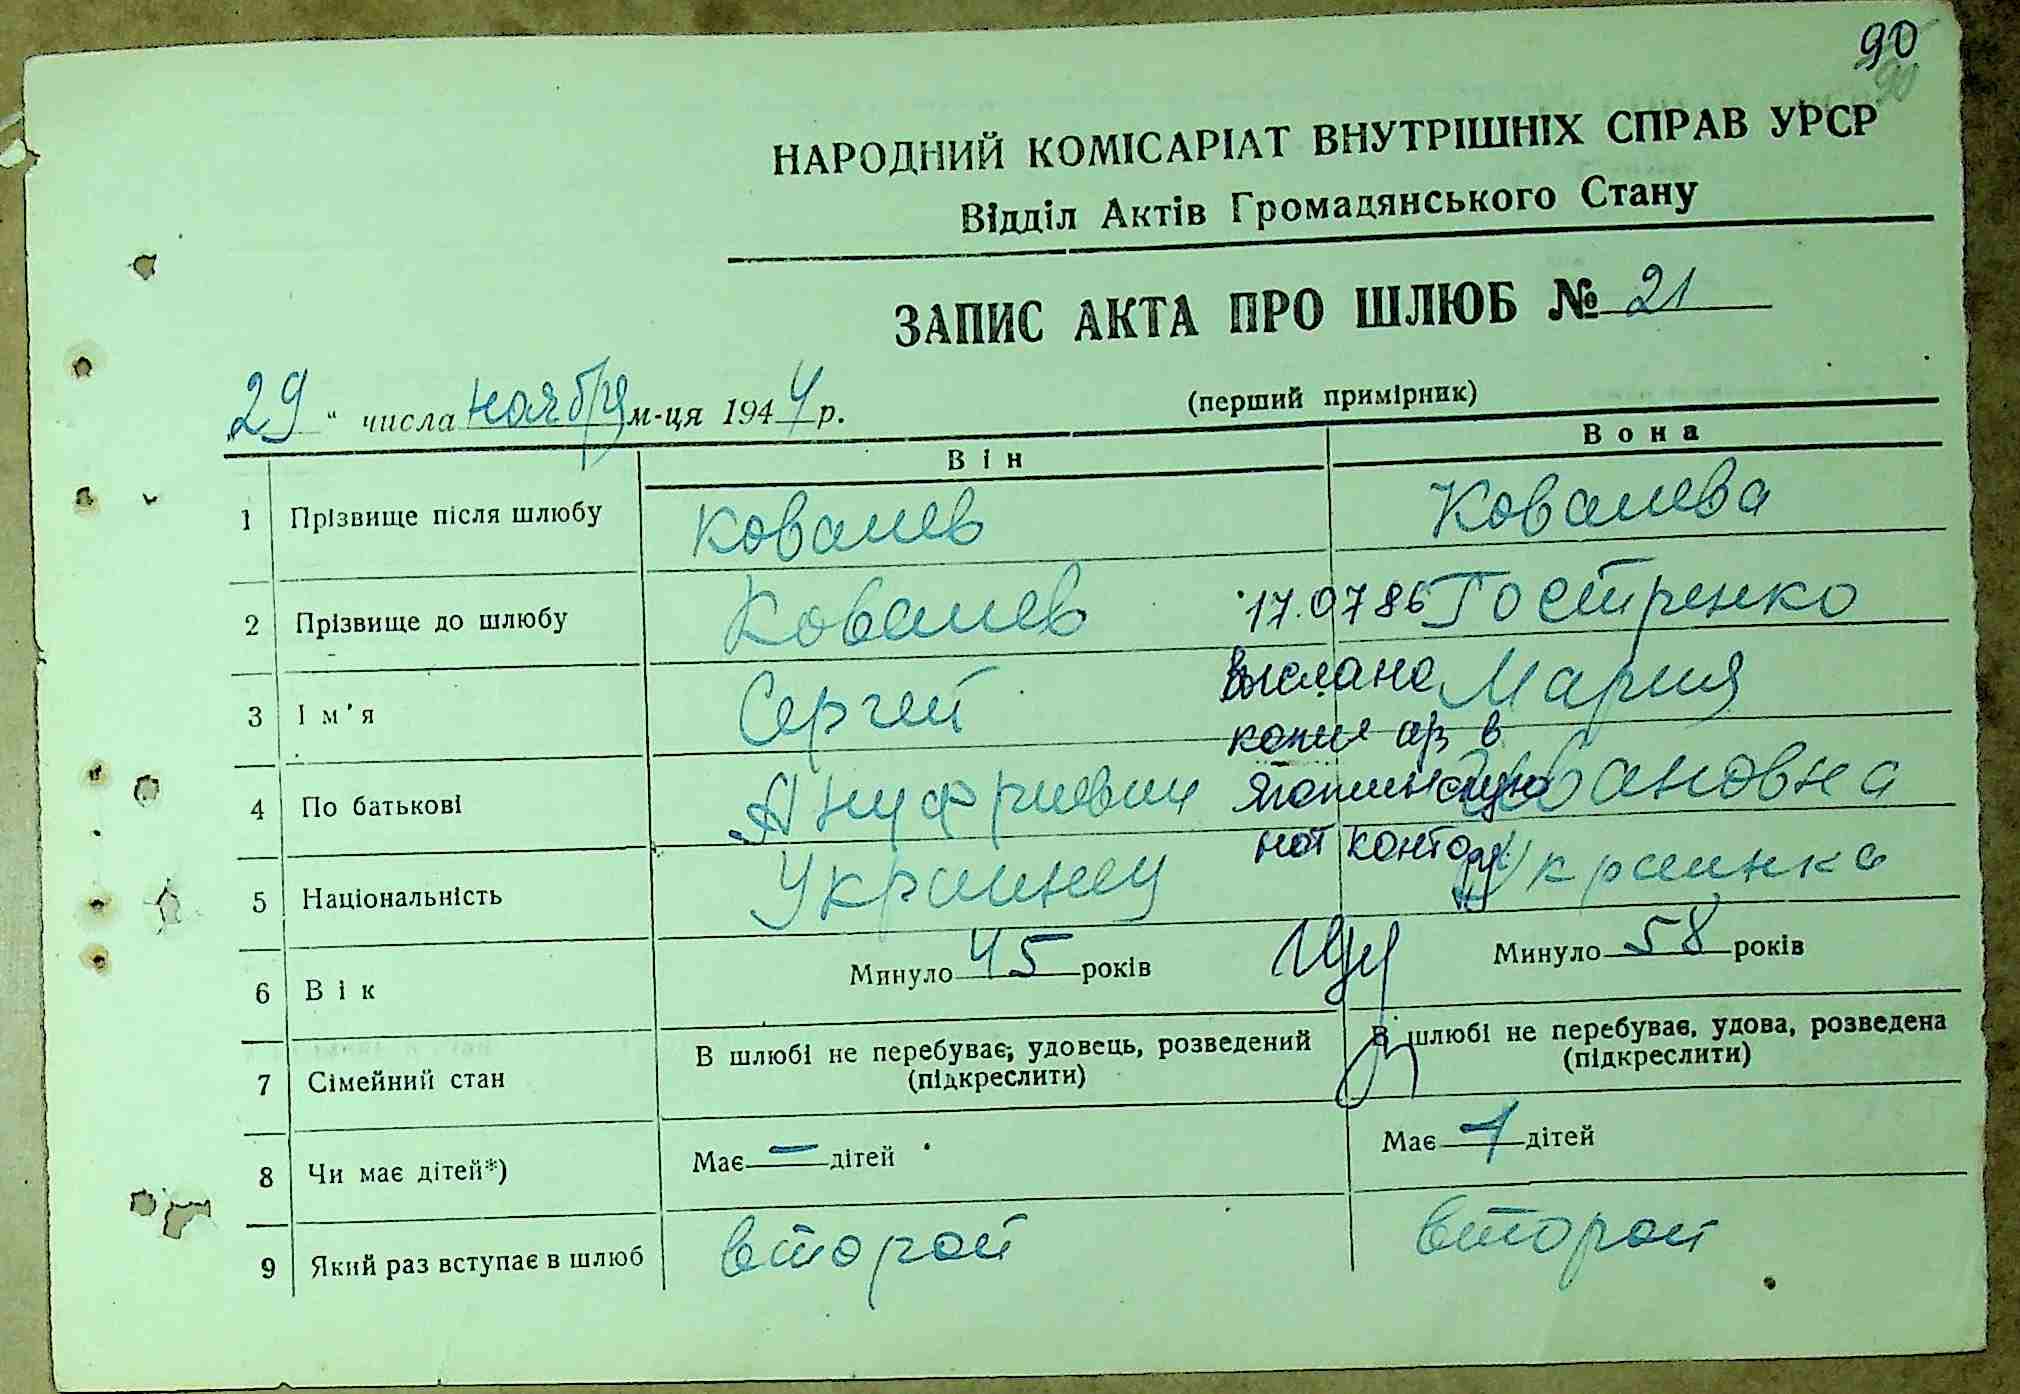 90
90
НАРОДНИЙ КОМІСАРІАТ ВНУТРІШНІХ СПРАВ УРСР
Відділ Актів Громадянського Стану
ЗАПИС АКТА ПРО ШЛЮБ № 21
29 " числа ноября м-ця 1944 р. (перший примірник)
Він Вона
1 Прізвище після шлюбу Ковалев Ковалева
2 Прізвище до шлюбу Ковалев Гостренко
17.07 86
3 Ім'я Сергей Мария
выслана
копия а/з в
4 По батькові Ануфриевич Ивановна
Яготинскую
нот контору
5 Національність Украинец Украинка
6 Вік Минуло 45 років Минуло 58 років
7 Сімейний стан В шлюбі не перебуває, удовець, розведений (підкреслити) В шлюбі не перебуває, удова, розведена (підкреслити)
8 Чи має дітей*) Має — дітей Має 1 дітей
9 Який раз вступає в шлюб второй второй